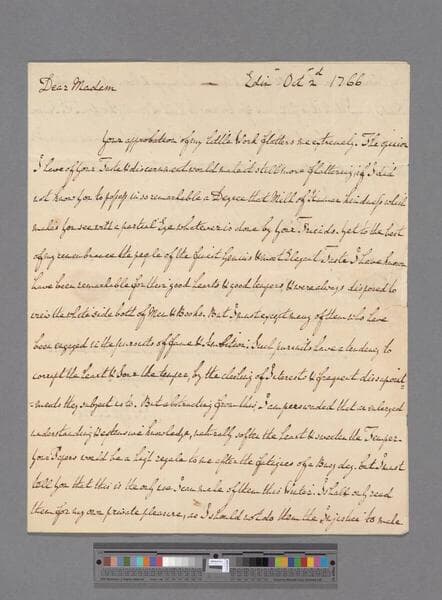 Dear Madam — Edinr Octr 2d 1766
Your approbation of my little Work flatters me extremely. The opinion
I have of Your Taste & discernment would make it still more flattering, if I did
not know You to possess in so remarkable a Degree that Milk of Human kindness which
makes You see with a partial Eye whatever is done by Your Friends. Yet to the best
of my remembrance the people of the finest Genius & most Elegant Taste I have known
have been remarkable for their good hearts & good tempers, & were always disposed to
see the white side both of Men & Books. But I must except many of them who have
been engaged in the pursuits of fame & Ambition: Such pursuits have a tendency to
corrupt the heart & sour the temper by the clashing of Interests & frequent disappoint-
-ments they subject us to. But abstracting from this, I am perswaded that an enlarged
understanding & extensive knowledge, naturally soften the heart & sweeten the Temper.
Your Papers would be a high regale to me after the fatigues of a Busy day. but I must
tell You that this is the only use I can make of them this Winter. I shall only read
them for my own private pleasure, as I should not do them the Injustice to make